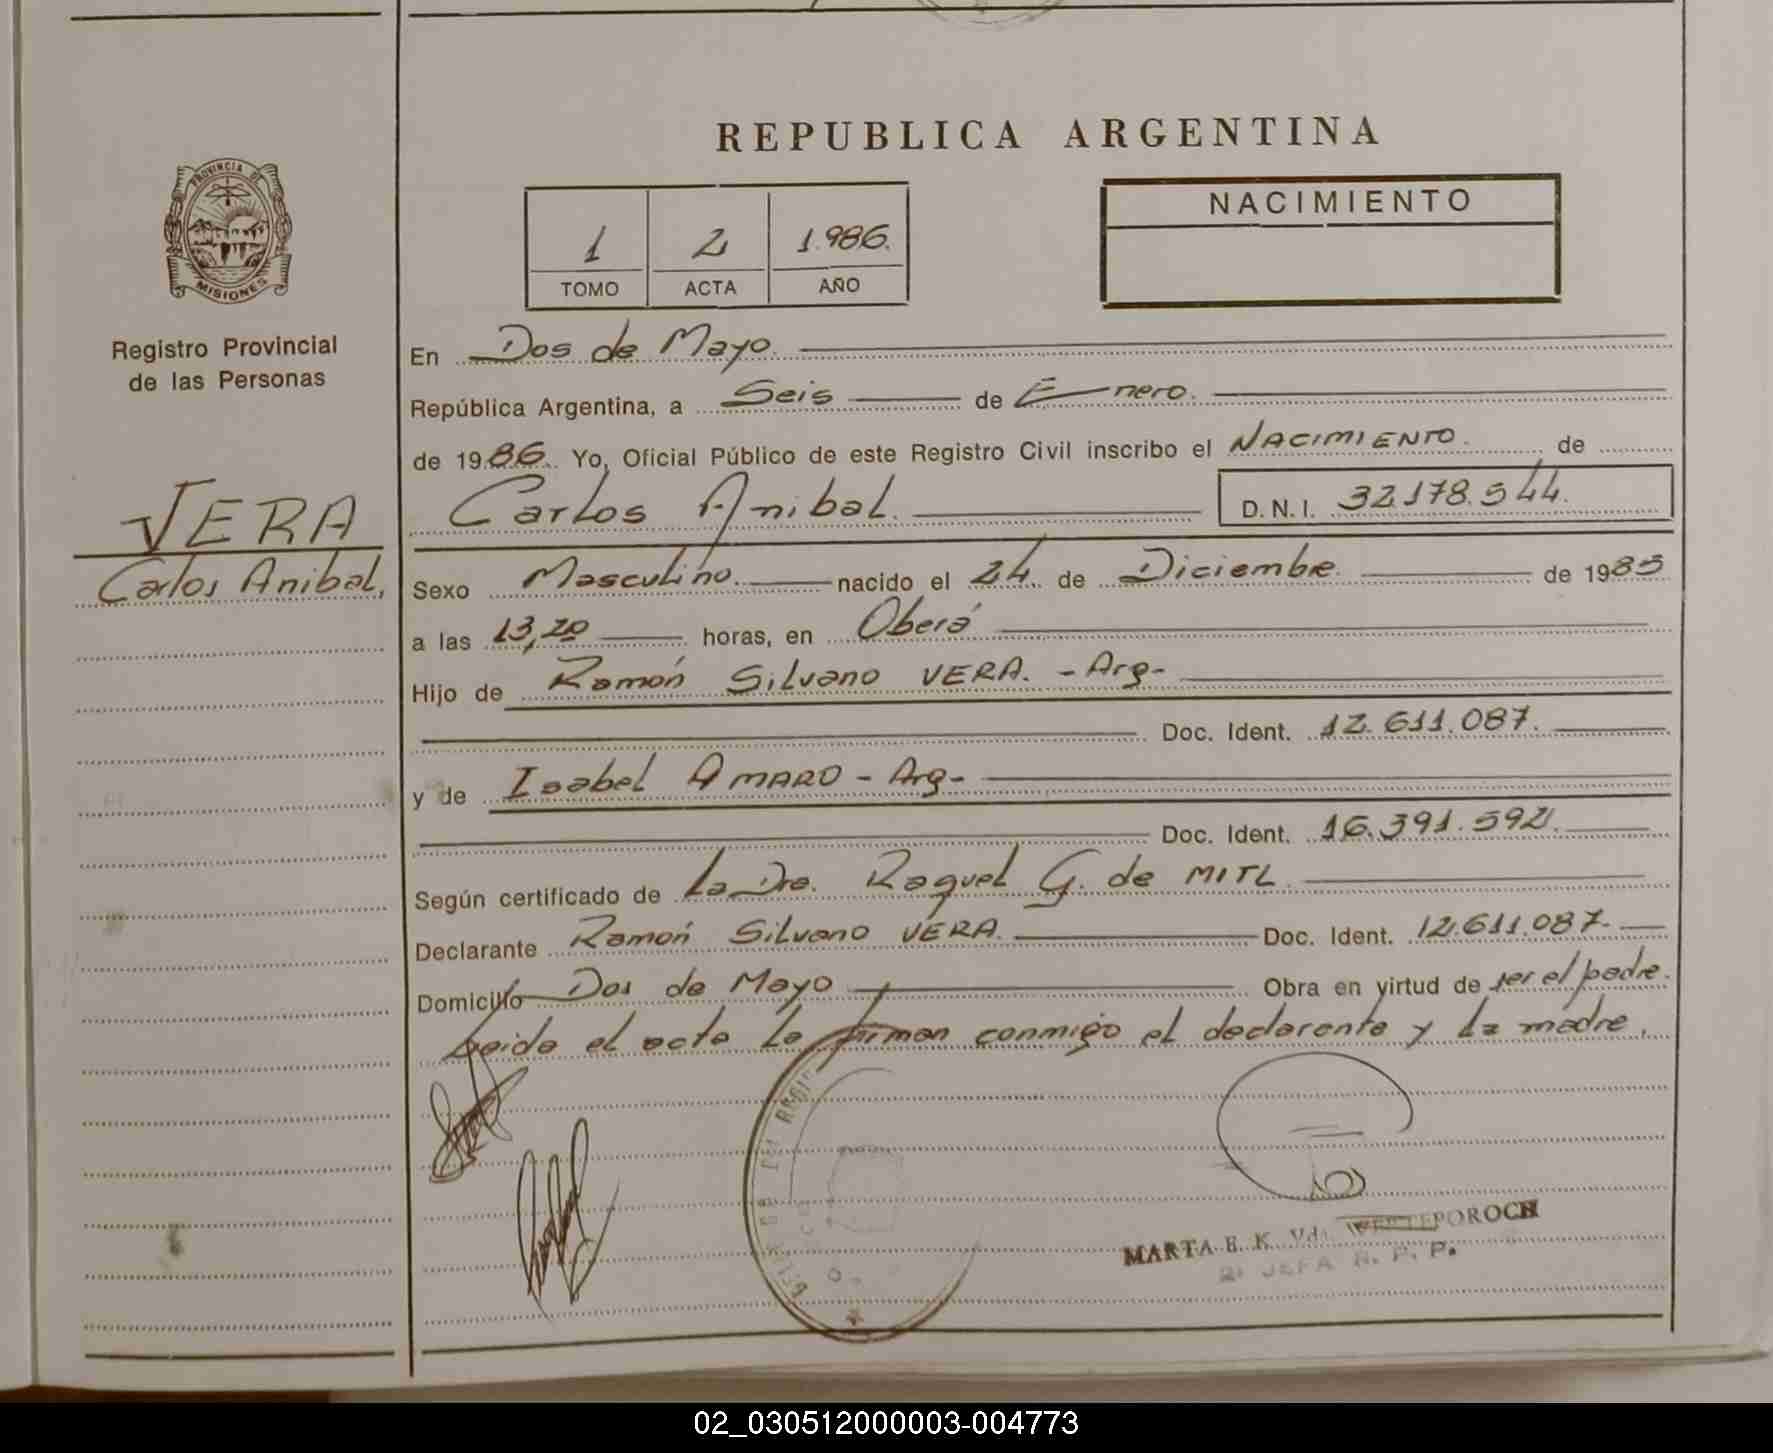 REPUBLICA ARGENTINA
PROVINCIA DE
MISIONES
Registro Provincial
de las Personas
VERA
Carlos Anibal,
1 2 1.986.
TOMO ACTA AÑO
NACIMIENTO
En Dos de Mayo.
República Argentina, a Seis de Enero.
de 1986. Yo, Oficial Público de este Registro Civil inscribo el NACIMIENTO. de
Carlos Anibal. D.N.I. 32.178.544.
Sexo Masculino. nacido el 24 de Diciembre. de 1985
a las 13,20 horas, en Oberá
Hijo de Ramón Silvano VERA. - Arg-
Doc. Ident. 12.611.087.
y de Isabel AMARO - Arg-
Doc. Ident. 16.391.592.
Según certificado de la Dra. Raquel G. de MITL.
Declarante Ramón Silvano VERA. Doc. Ident. 12.611.087.
Domicilio Dos de Mayo Obra en virtud de ser el padre.
Leida el acta la firman conmigo el declarante y la madre.
MARTA E. K. Vda.
JEFA R. P. P.
02_030512000003-004773